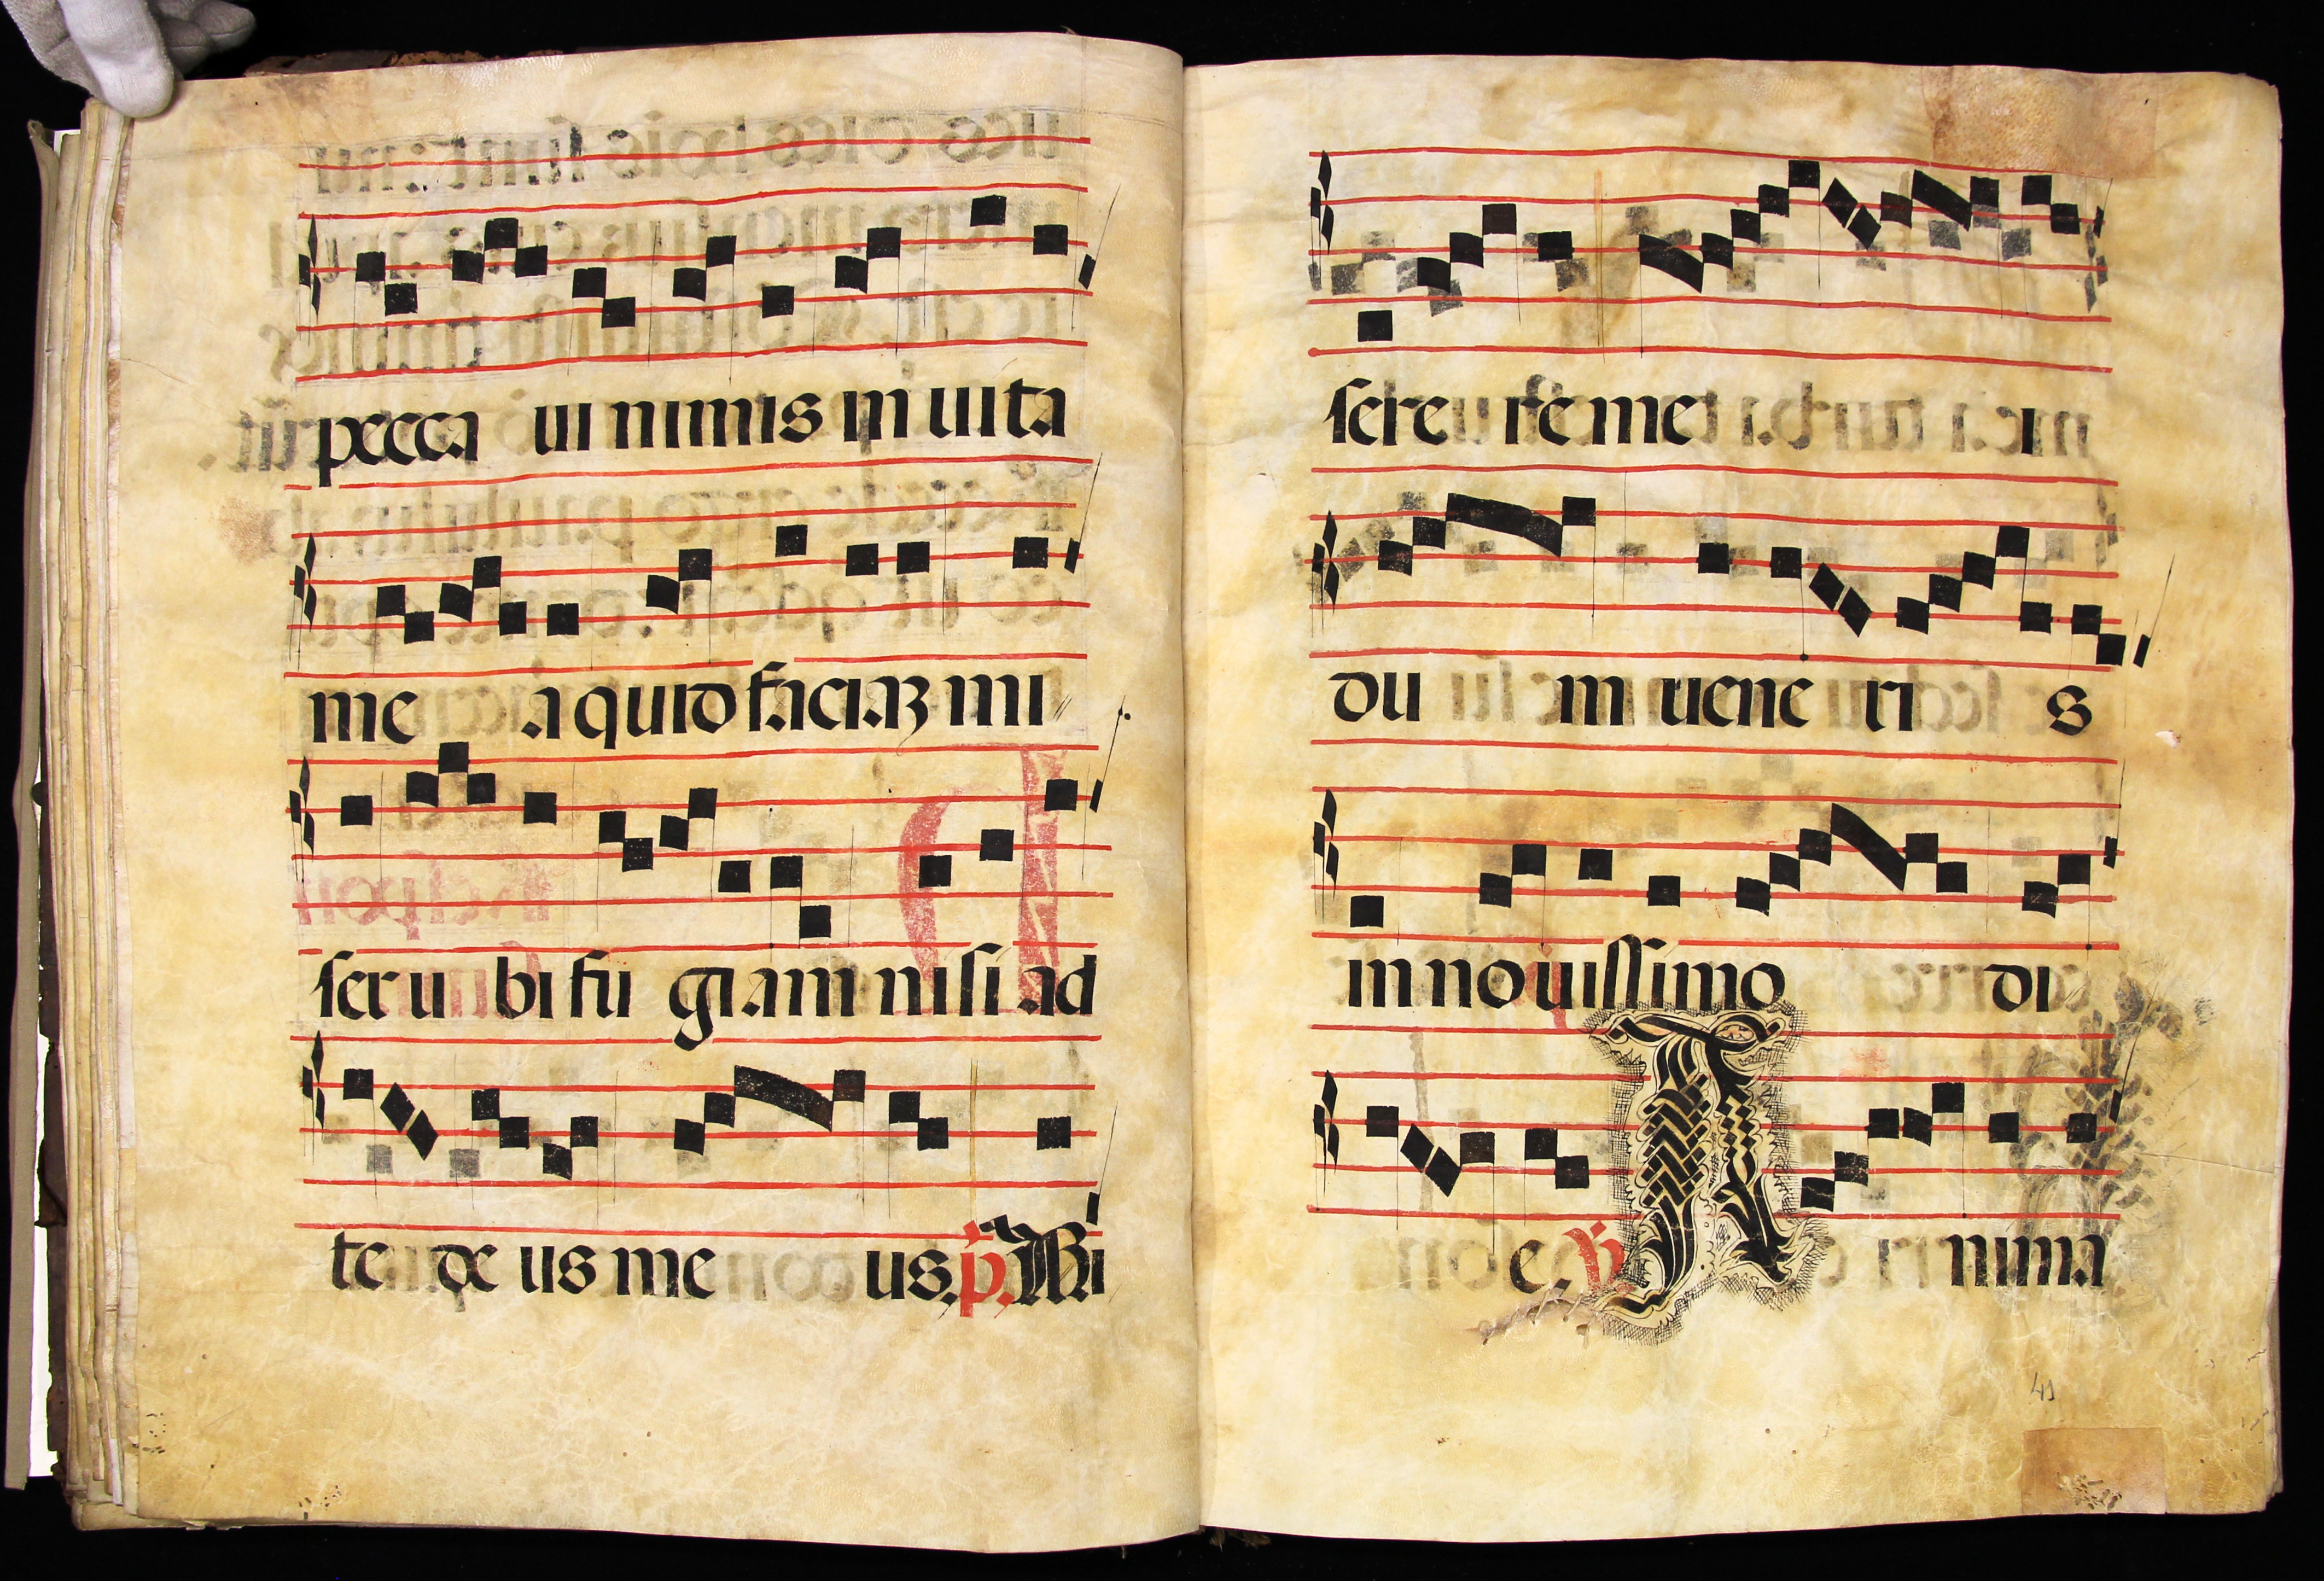 pecca ui nimis in uita
me a quid faciaʒ mi
ser u bi fu giam nisi ad
te de us me us. p. Mi
sere re me i
du m uene ri s
in nouissimo di
e. ℣ A nima
41